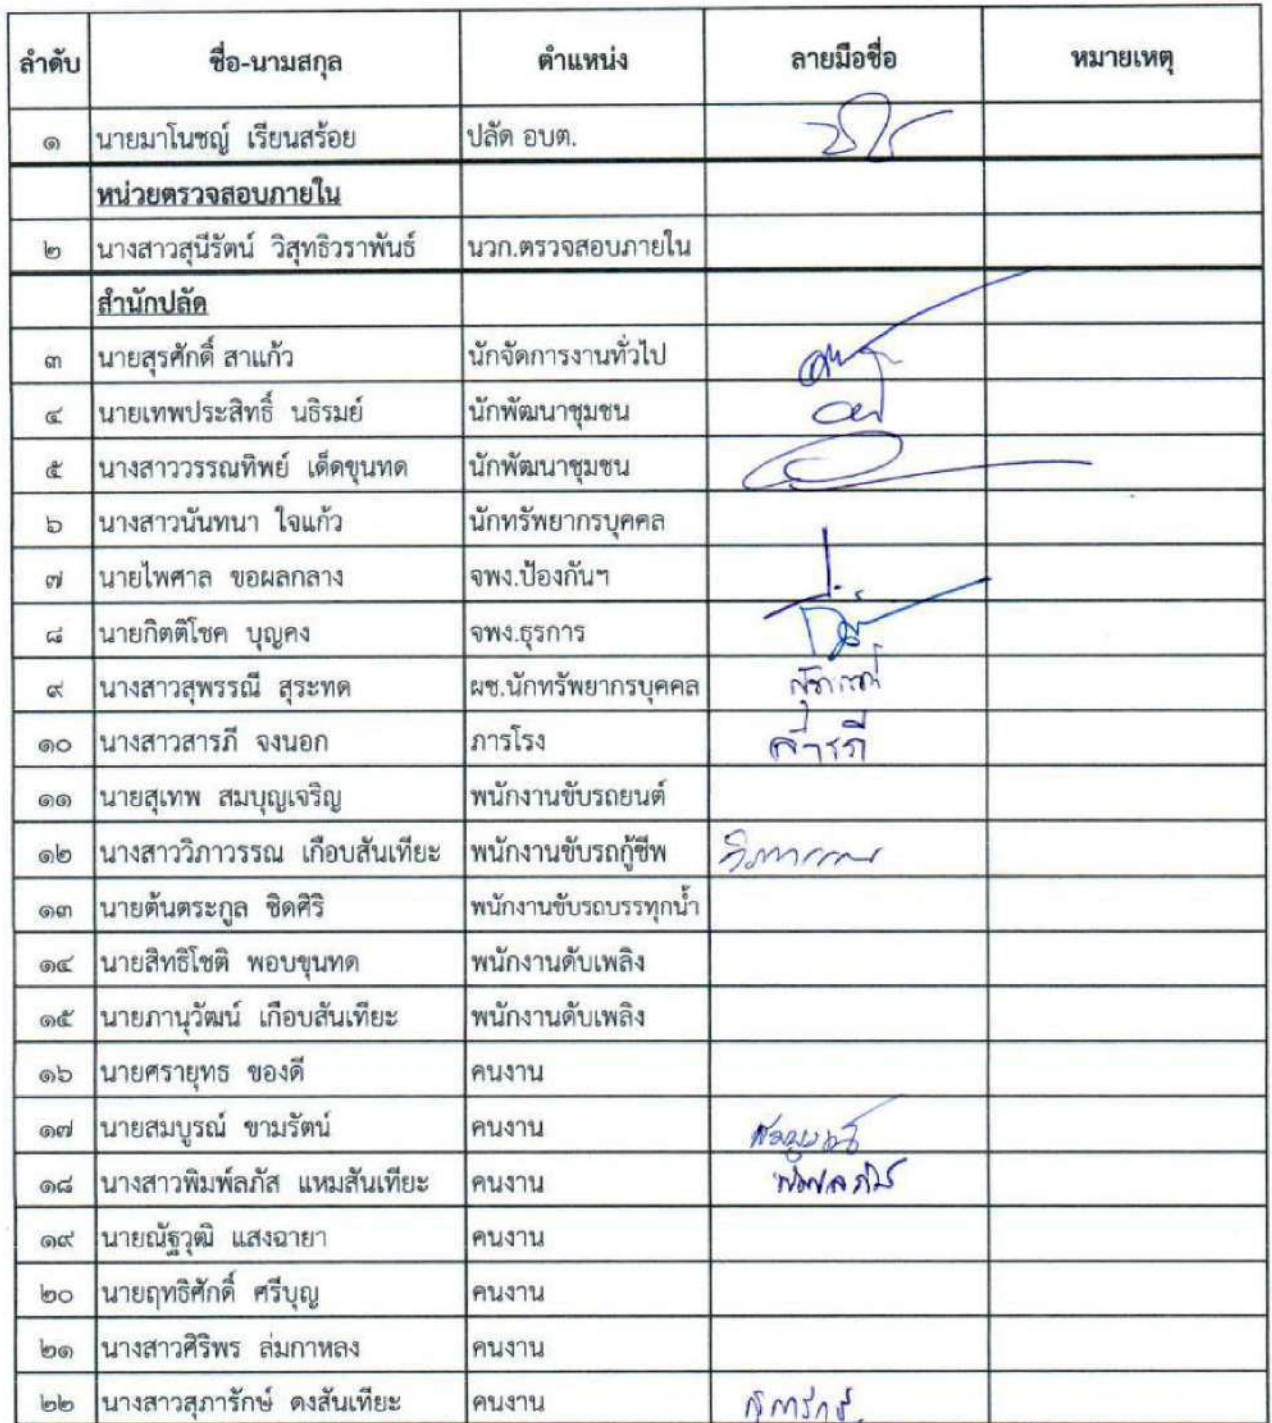 ลำดับ ชื่อ-นามสกุล ตำแหน่ง ลายมือชื่อ หมายเหตุ
๑ นายมาโนชญ์ เรียนสร้อย ปลัด อบต.
หน่วยตรวจสอบภายใน
๒ นางสาวสุนีรัตน์ วิสุทธิวราพันธ์ นวก.ตรวจสอบภายใน
สำนักปลัด
๓ นายสุรศักดิ์ สาแก้ว นักจัดการงานทั่วไป
๔ นายเทพประสิทธิ์ นธิรมย์ นักพัฒนาชุมชน
๕ นางสาววรรณทิพย์ เด็ดขุนทด นักพัฒนาชุมชน
๖ นางสาวนันทนา ใจแก้ว นักทรัพยากรบุคคล
๗ นายไพศาล ขอผลกลาง จพง.ป้องกันฯ
๘ นายกิตติโชค บุญคง จพง.ธุรการ
๙ นางสาวสุพรรณี สุระทด ผช.นักทรัพยากรบุคคล
๑๐ นางสาวสารภี จงนอก ภารโรง สารภี
๑๑ นายสุเทพ สมบุญเจริญ พนักงานขับรถยนต์
๑๒ นางสาววิภาวรรณ เกือบสันเทียะ พนักงานขับรถกู้ชีพ วิภาวรรณ
๑๓ นายต้นตระกูล ชิดศิริ พนักงานขับรถบรรทุกน้ำ
๑๔ นายสิทธิโชติ พอบขุนทด พนักงานดับเพลิง
๑๕ นายภานุวัฒน์ เกือบสันเทียะ พนักงานดับเพลิง
๑๖ นายศรายุทธ ของดี คนงาน
๑๗ นายสมบูรณ์ ขามรัตน์ คนงาน สมบูรณ์
๑๘ นางสาวพิมพ์ลภัส แหมสันเทียะ คนงาน พิมพ์ลภัส
๑๙ นายณัฐวุฒิ แสงฉายา คนงาน
๒๐ นายฤทธิศักดิ์ ศรีบุญ คนงาน
๒๑ นางสาวศิริพร ล่มกาหลง คนงาน
๒๒ นางสาวสุภารักษ์ ดงสันเทียะ คนงาน สุภารักษ์